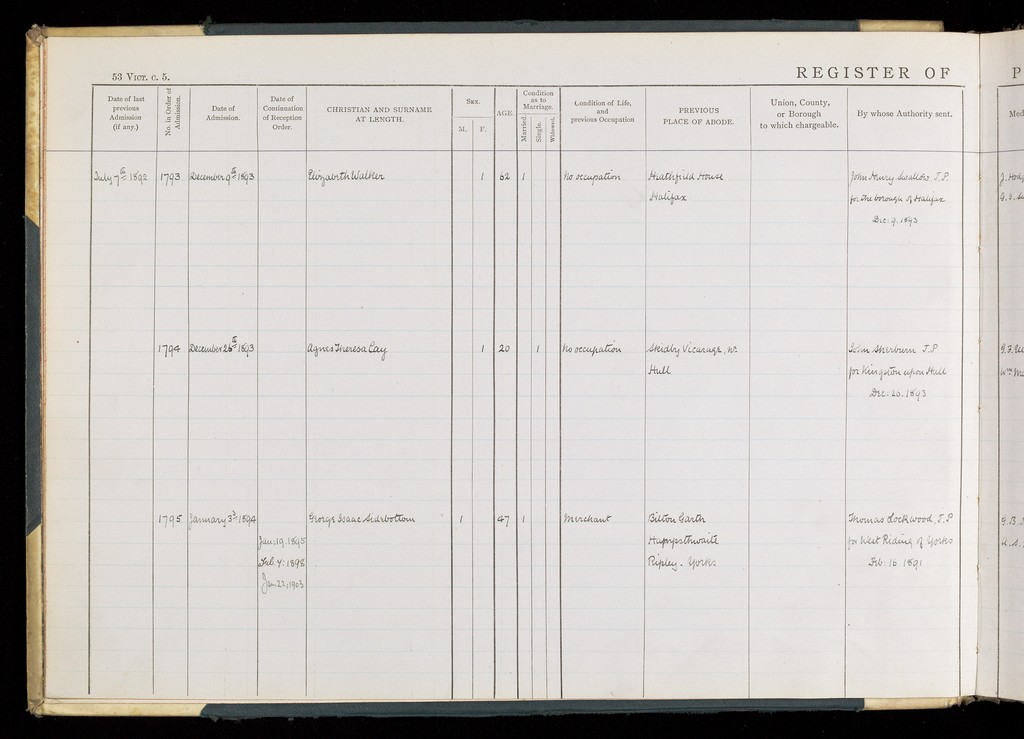 53 VICT. c. 5.
REGISTER OF
P
Date of last previous Admission (if any.)
No. in Order of Admission.
Date of Admission.
Date of Continuation of Reception Order.
CHRISTIAN AND SURNAME AT LENGTH.
SEX.
M.
F.
AGE.
Condition as to Marriage.
Married.
Single.
Widowed.
Condition of Life, and previous Occupation
PREVIOUS PLACE OF ABODE.
Union, County, or Borough to which chargeable.
By whose Authority sent.
Med
July 7th 1892 1793 December 9th 1893 Elizabeth Walker 1 62 1 No occupation Heathfield House John Henry Swallow, J.P.
Halifax for the borough of Halifax
Dec: 9. 1893
1794 December 26th 1893 Agnes Theresa Cay 1 20 1 No occupation Skidby Vicarage, nr. John Sherburn J.P
Hull for Kingston upon Hull
Dec: 26. 1893
1795 January 3rd 1894 George Isaac Sidebottom 1 47 1 Merchant Bilton Garth Thomas Lockwood, J.P
Jan: 19. 1895 for West Riding of Yorks
Feb. 4: 1898 Ripley. Yorks Feb: 16 1891
Jan. 22, 1903